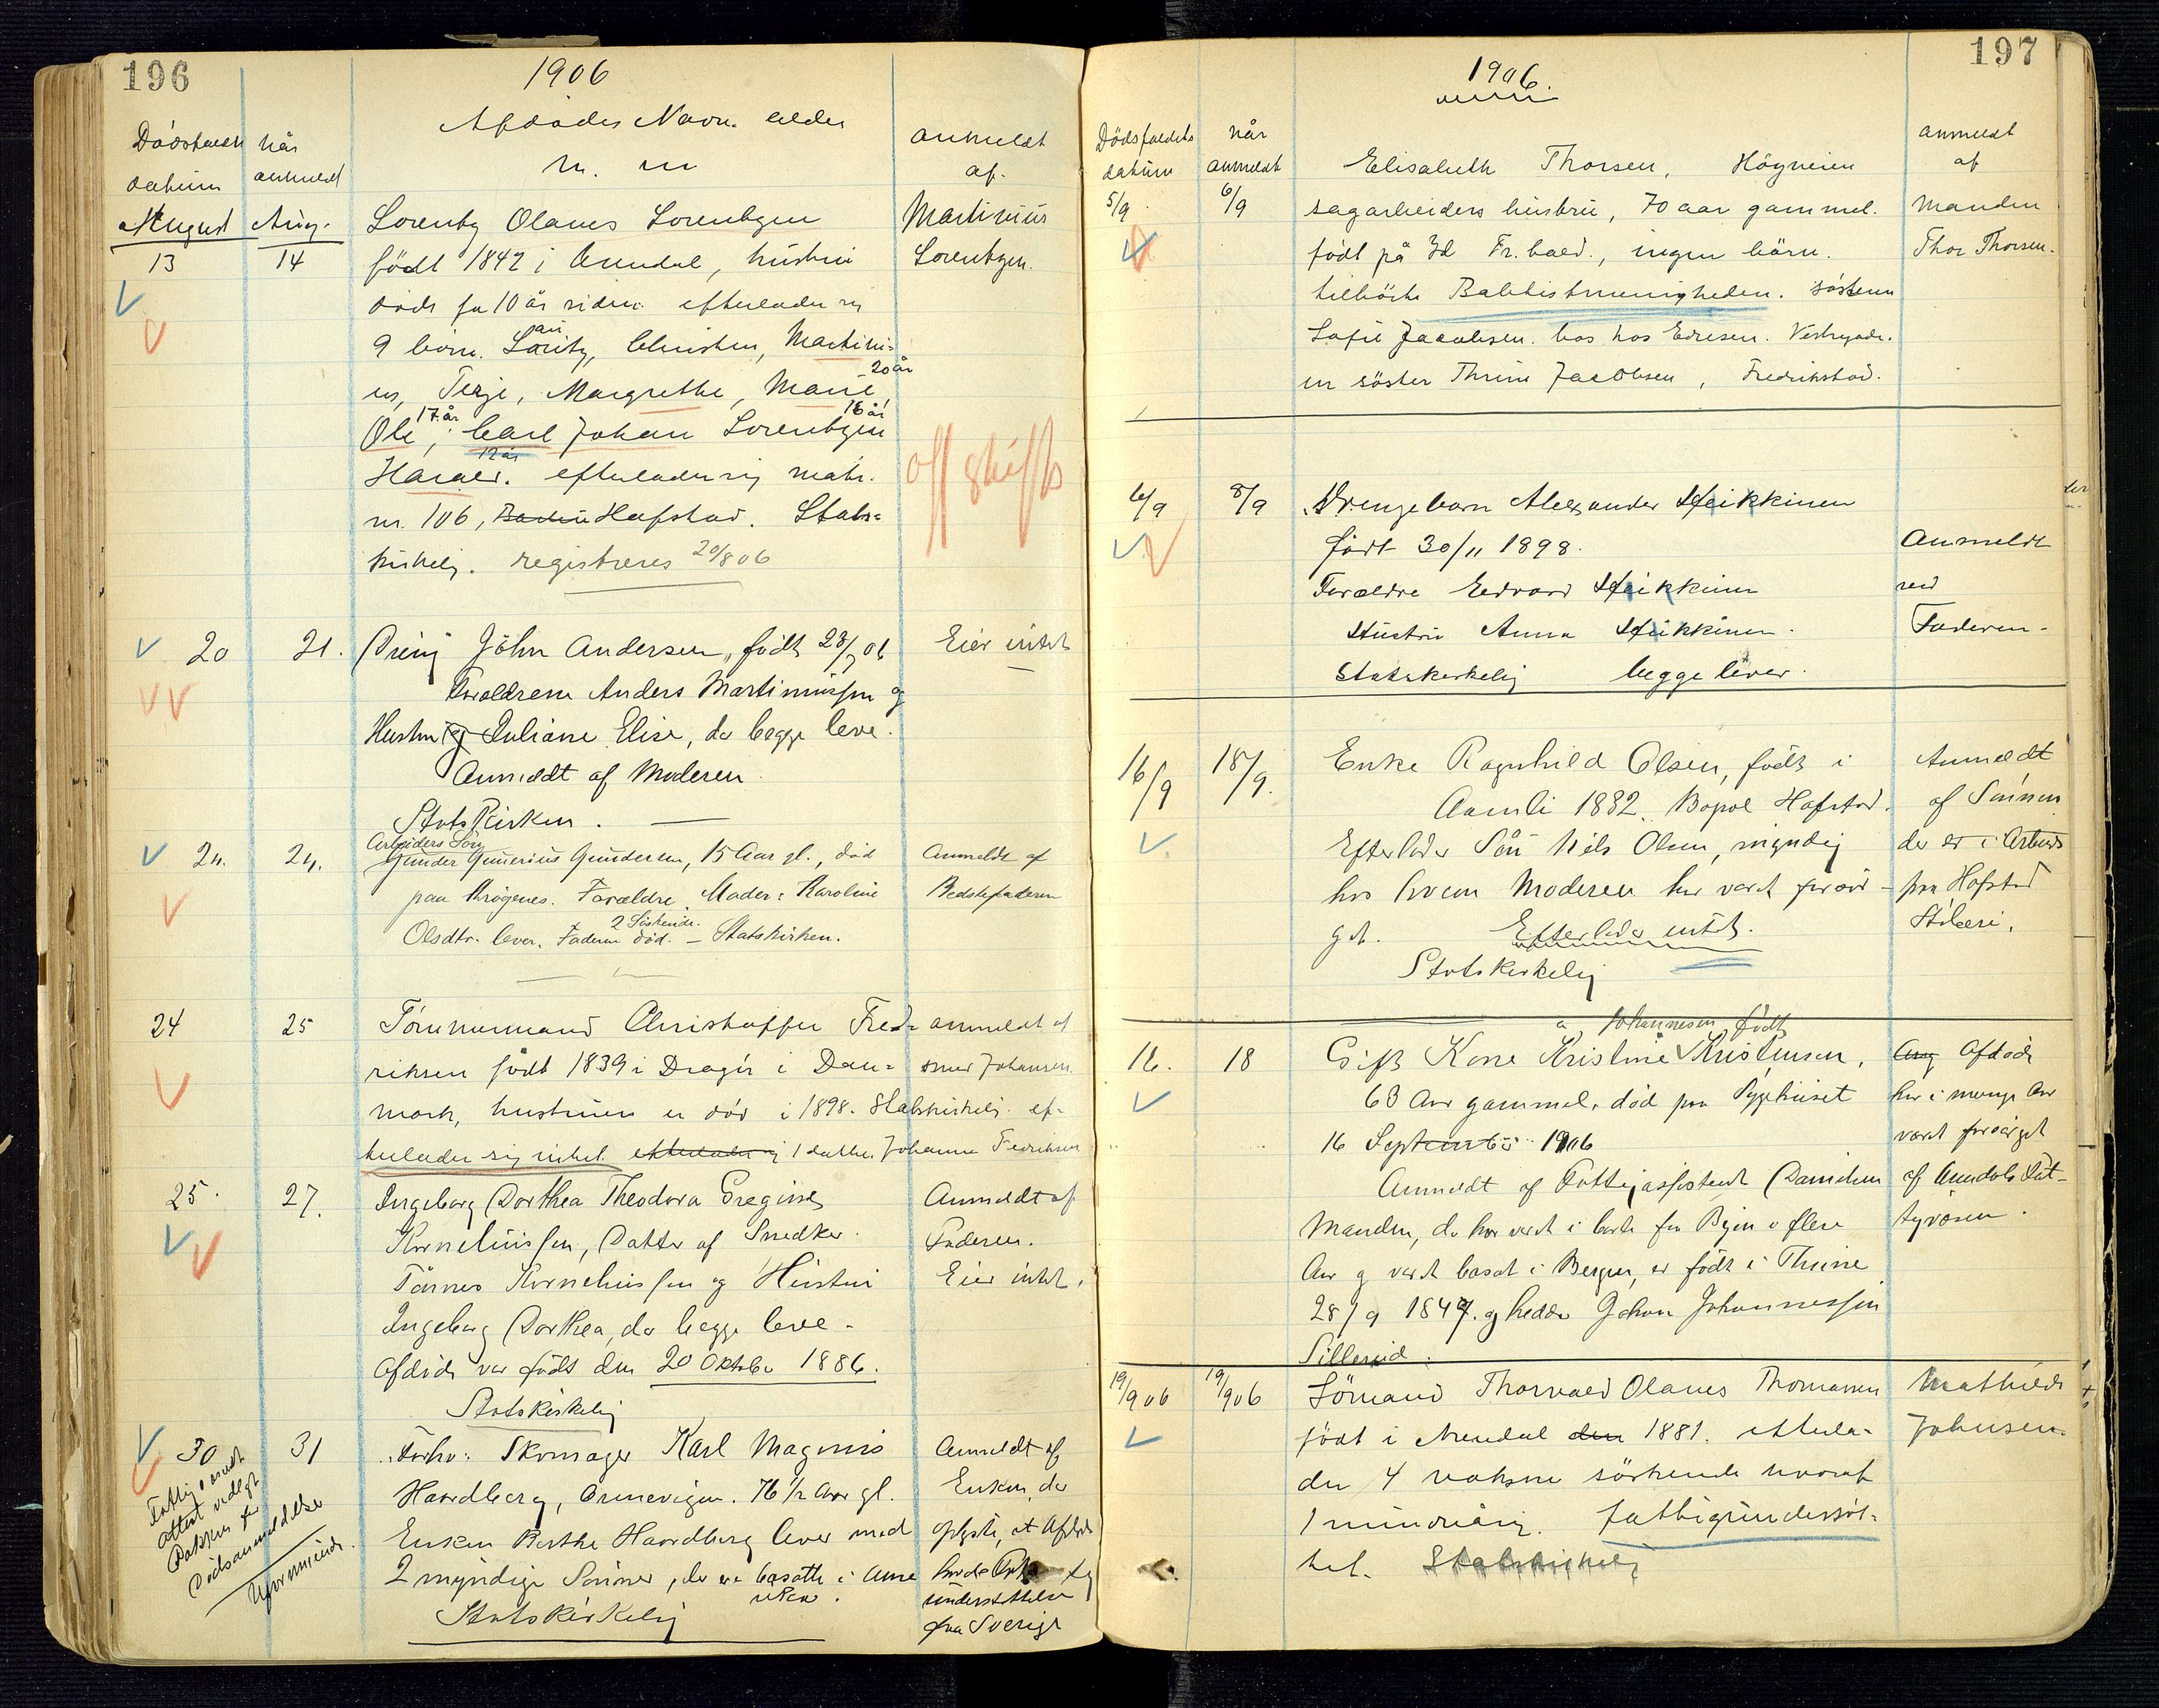 196
1906
Afdödes Navn alder
m. m
Dödsfaldets
datum
når
anmeldt
anmeldt
af.
August
13
Aug.
14
Lorentz Olaus Lorentzen
født 1842 i Arendal, hustru
døde for 10 år siden efterlader sig
9 börn. Lauritz, Christen, Martini=
us, Terje, Margrethe, Marie 20 år
Ole 17 år, Carl Johan Lorentzen 16 år
Harald. 12 år efterlader sig matr.
nr. 106, Hafstad. Stats=
kirkelig. registreres 20/8 06
Martinius
Lorentzen.
off skifte
20
21.
Dreng John Andersen, født 28/7 06
Forældrene Anders Martiniussen og
Hustru Juliane Elise, der begge leve.
Anmeldt af Moderen
Statskirken.
Eier intet
24.
24.
Arbeiders Søn
Gunder Gunerius Gundersen, 15 Aar gl., død
paa Krøgenes. Forældre Moder: Karoline
2 Söskende.
Olsdtr. lever. Faderen død. - Statskirken.
Anmeldt af
Bedstefaderen
24
25
Tömmermand Christoffer Fred=
riksen født 1839 i Dragör i Dan=
mark, hustruen er död i 1898. Statskirkelig. ef=
terlader sig intet. efterlader sig 1 datter Johanne Fredriksen
anmeldt af
Johansen
25.
27.
Ingeborg Dorthea Theodora Gregine
Korneliussen, Datter af Snedker
Tönnes Korneliussen og Hustru
Ingeborg Dorthea, der begge leve.
Afdöde var født den 20 Oktober 1886.
Statskirkelig
Anmeldt af
Faderen.
Eier intet.
30
31
Forhv. Skomager Karl Magnus
Haardberg, Arnevigen. 76 1/2 Aar gl.
Enken Berthe Haardberg lever med
2 myndige Sönner, der er bosatte i Ame
rika.
Statskirkelig
Anmeldt af
Enken, der
oplyste, at Afdöde
havde
understøttelse
fra Sverige
attest vedlagt
Dødsanmeldelse
197
1906.
Dödsfaldets
datum
når
anmeldt
anmeldt
af
5/9
6/9
Elisabeth Thorsen, Högneien
sagarbeiders hustru, 70 aar gammel.
født på Id Fr.hald., ingen börn.
tilhörte Babtistmenigheden. söstrene
Sofie Jacobsen. bos hos Edvsen. Vestregade.
en söster Thrine Jacobsen, Fredrikstad.
manden
Thor Thorsen.
6/9
8/9
Drengebarn Alexander Heikkinen
født 30/11 1898.
Forældre Edvard Heikkinen
Hustru Anna Heikkinen.
Statskirkelig begge lever.
Anmeldt
ved
Faderen.
16/9
18/9.
Enke Ragnhild Olsen, født i
Aamli 1832. Bopæl Hafstad.
Efterlader Sön Nils Olsen, myndig
hos hvem Moderen har været forsör-
get. Efterlader intet.
Statskirkelig
Anmeldt
af Sönnen
der er i Arbeid
paa Hafstad
Stöberi.
16.
18
Johannesen, født
Gift Kone Kristine Kristensen,
63 Aar gammel, död paa Sygehuset
16 September 1906
Anmeldt af Fattigassistent Danielsen
Manden, der har været i borte fra Byen i flere
Aar og været bosat i Bergen, er født i Thiine
28/9 1847. og hedder Johan Johannessen
Sillerud.
Afdöde
har i mange Aar
været forsörget
af Arendals Fat-
tigvæsen.
19/9 06
19/9 06
Sömand Thorvald Olaus Thomassen
født i Arendal den 1881. efterla=
der 4 voksne söskende hvoraf
1 mindreårig. fattigunderstöt=
tet. Statskirkelig
Mathilde
Johnsen.